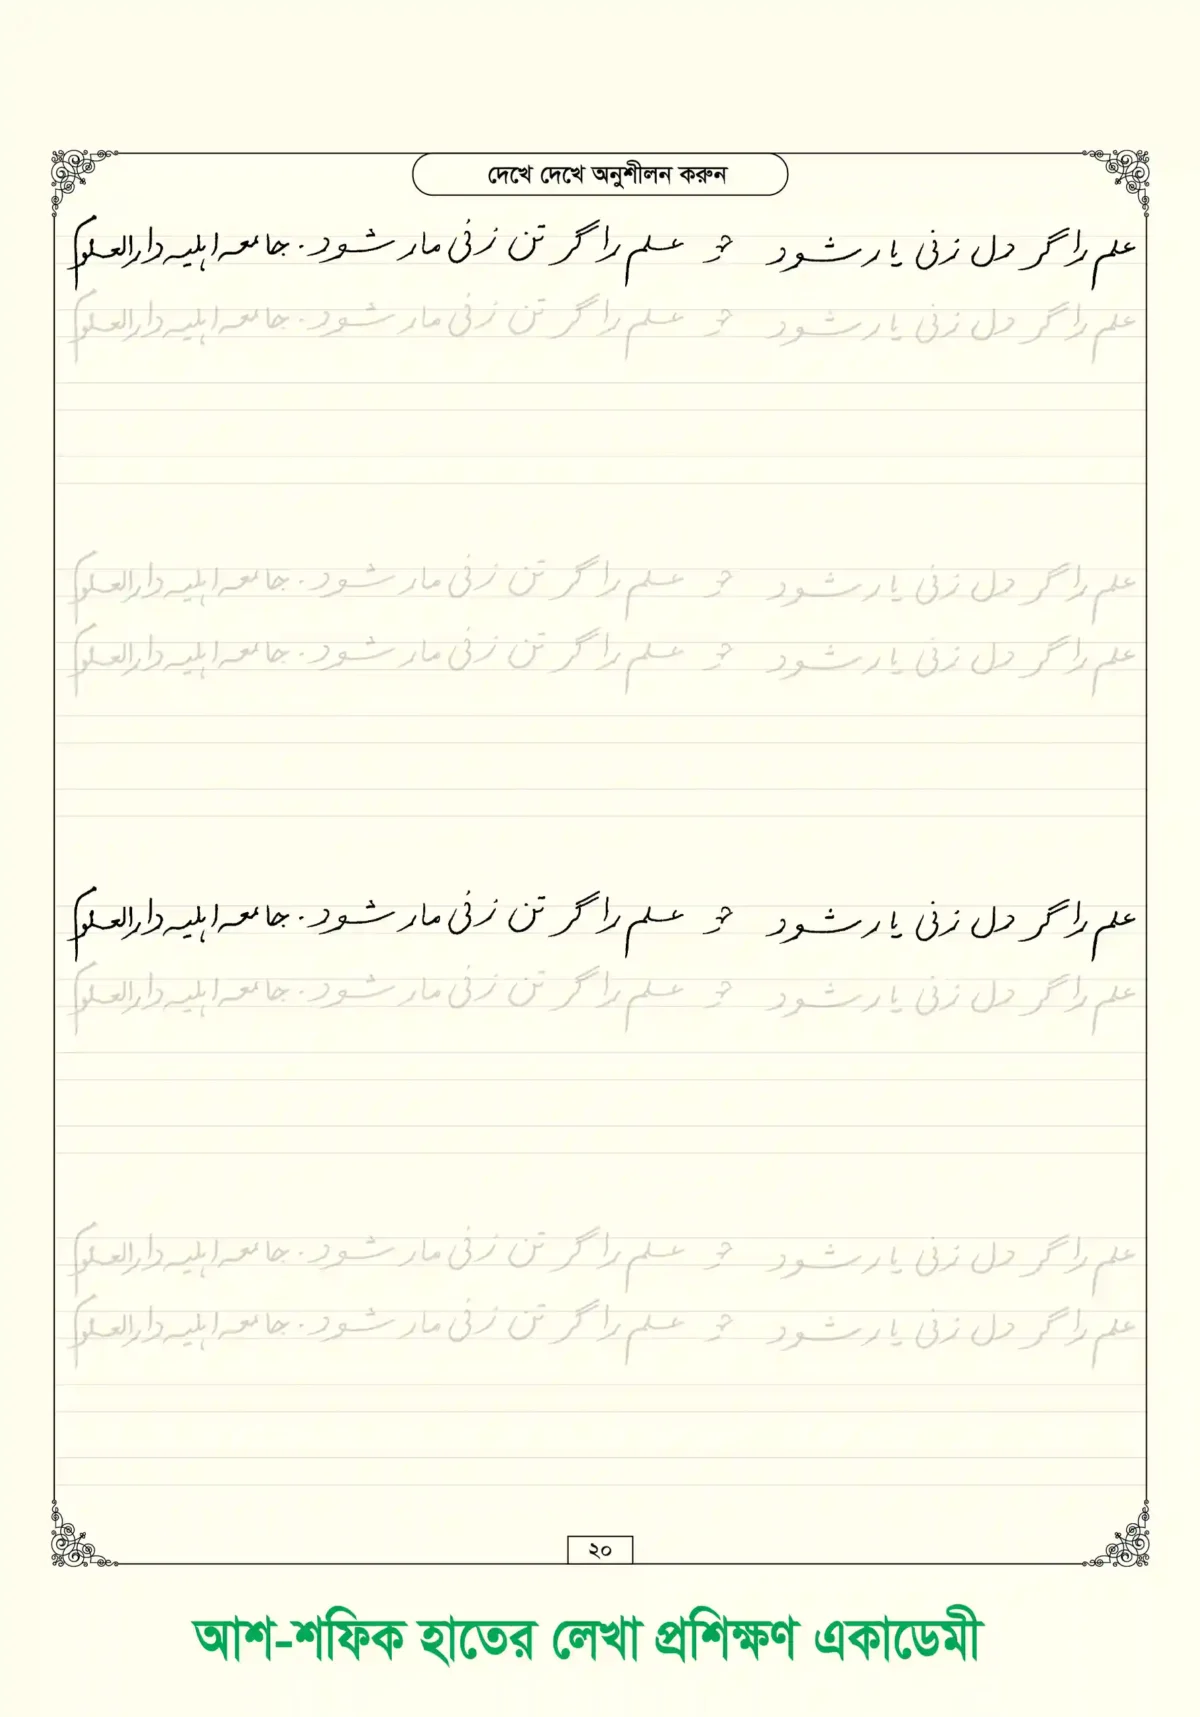 দেখে দেখে অনুশীলন করুন
علم را گر دل زنی یار شود علم را گر تن زنی مار شود. جامعہ اہلیہ دارالعلوم
علم را گر دل زنی یار شود علم را گر تن زنی مار شود. جامعہ اہلیہ دارالعلوم
علم را گر دل زنی یار شود علم را گر تن زنی مار شود. جامعہ اہلیہ دارالعلوم
علم را گر دل زنی یار شود علم را گر تن زنی مار شود. جامعہ اہلیہ دارالعلوم
علم را گر دل زنی یار شود علم را گر تن زنی مار شود. جامعہ اہلیہ دارالعلوم
علم را گر دل زنی یار شود علم را گر تن زنی مار شود. جامعہ اہلیہ دارالعلوم
علم را گر دل زنی یار شود علم را گر تن زنی مار شود. جامعہ اہلیہ دارالعلوم
علم را گر دل زنی یار شود علم را گر تن زنی مار شود. جامعہ اہلیہ دارالعلوم
২০
আশ-শফিক হাতের লেখা প্রশিক্ষণ একাডেমী